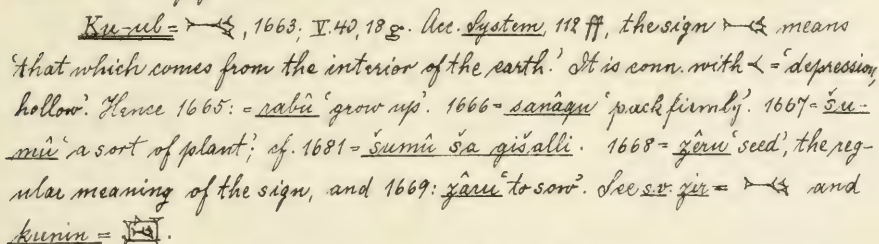 Ku-ub = 𒆰, 1663, V. 40, 18 g. Acc. System, 112 ff, the sign 𒆰 means
'that which comes from the interior of the earth.' It is conn. with 𒌋 = 'depression,
hollow'. Hence 1665: = rabû 'grow up'. 1666 = sanâqu 'pack firmly'. 1667 = šu-
mû 'a sort of plant'; cf. 1681 = šumû ša gišalli. 1668 = zêru 'seed', the reg-
ular meaning of the sign, and 1669: zâru 'to sow'. See s.v. zir = 𒆰 and
kunin =